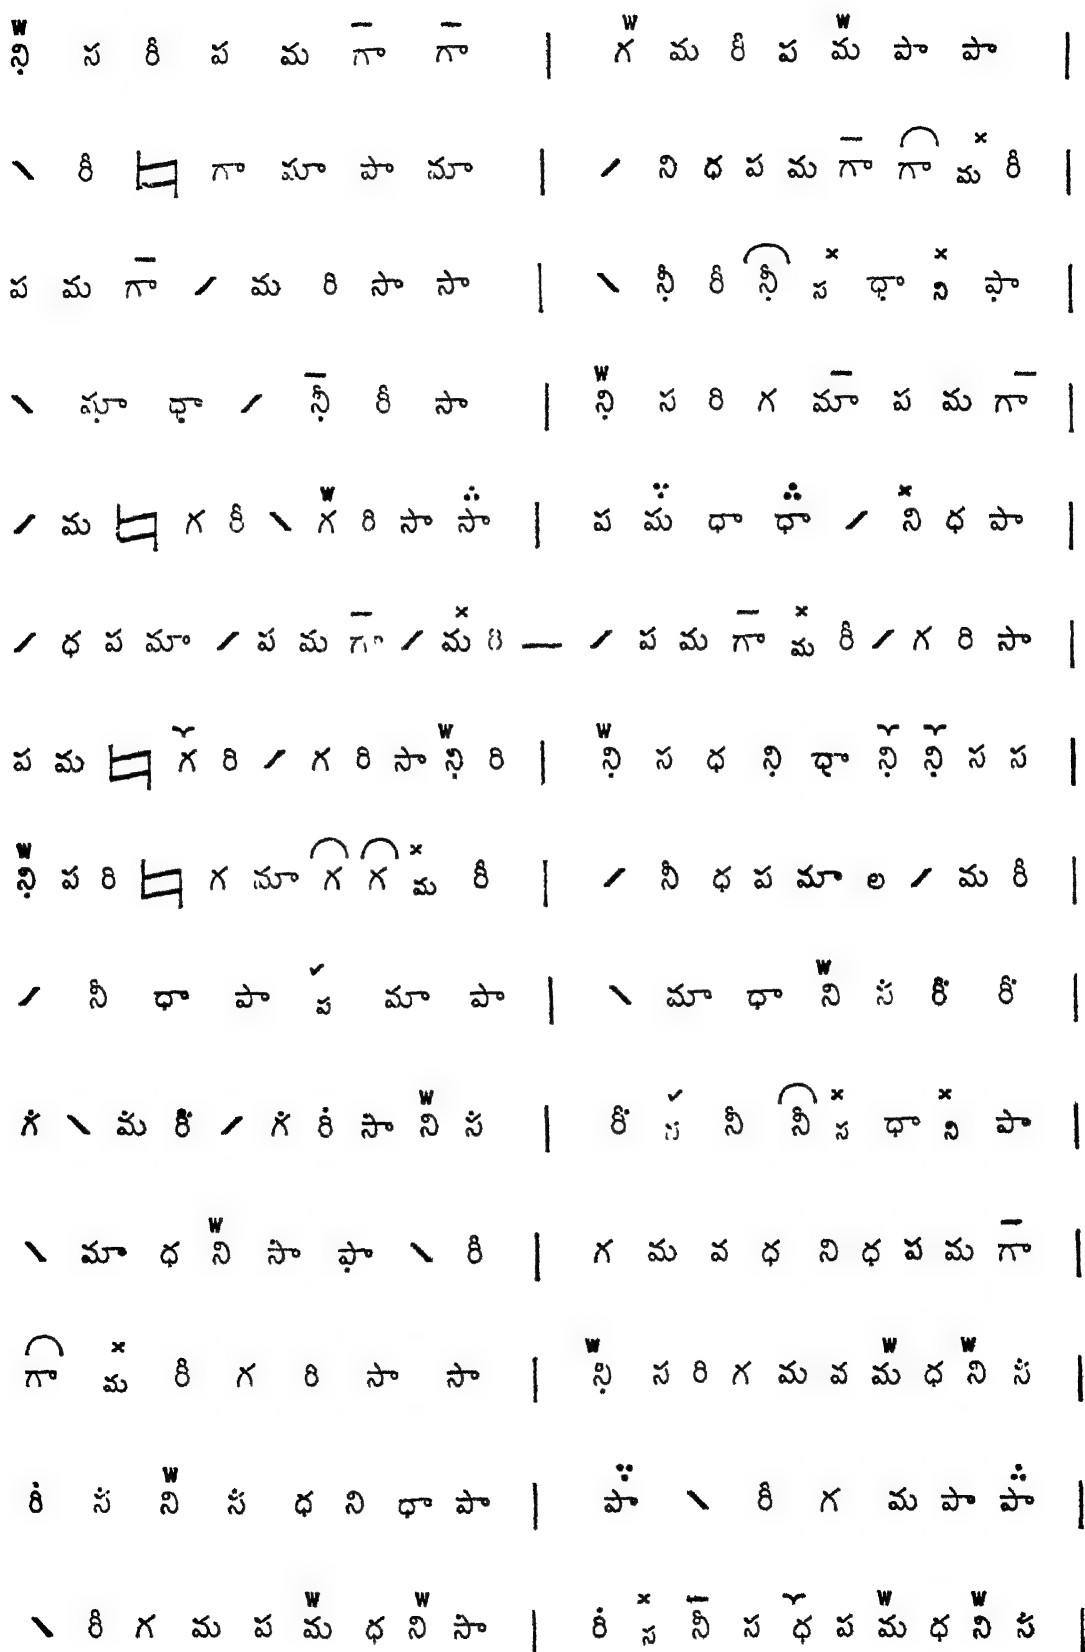 ని స రీ ప మ గా గా | గ మ రీ ప మ పా పా |
\ రీ గా మా పా మా | / ని ధ ప మ గా గా మ రీ |
ప మ గా / మ రి సా సా | \ నీ రీ నీ స ధా ని పా |
\ మా ధా / నీ రీ సా | ని స రి గ మా ప మ గా |
/ మ గ రీ \ గ రి సా సా | ప మ ధా ధా / ని ధ పా |
/ ధ ప మా / ప మ గా / మ రి — / ప మ గా మ రీ / గ రి సా |
ప మ గ రి / గ రి సా ని రి | ని స ధ ని ధా ని ని స స |
ని ప రి గ మా గ గ మ రీ | / నీ ధ ప మా ల / మ రీ |
/ నీ ధా పా ప మా పా | \ మా ధా ని స రీ రీ |
గ \ మ రీ / గ రి సా ని స | రీ స నీ నీ స ధా ని పా |
\ మా ధ ని సా పా \ రీ | గ మ వ ధ ని ధ ప మ గా |
గా మ రీ గ రి సా సా | ని స రి గ మ వ మ ధ ని స |
రి స ని స ధ ని ధా పా | పా \ రీ గ మ పా పా |
\ రీ గ మ ప మ ధ ని సా | రి స నీ స ధ ప మ ధ ని స |